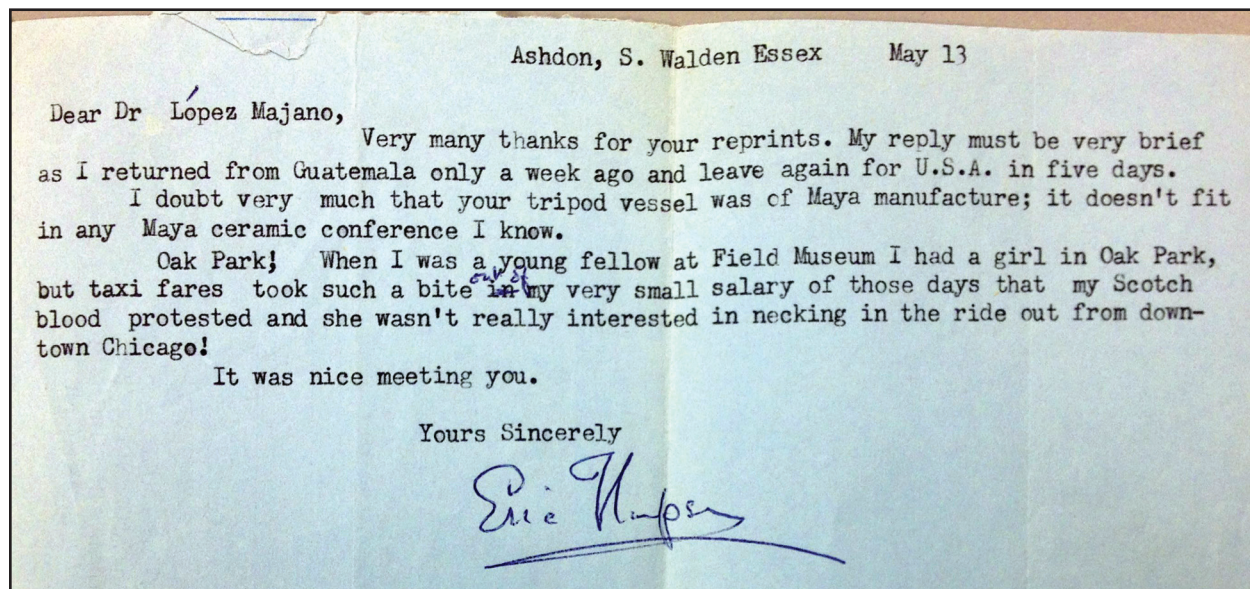 Ashdon, S. Walden Essex May 13
Dear Dr López Majano,
Very many thanks for your reprints. My reply must be very brief
as I returned from Guatemala only a week ago and leave again for U.S.A. in five days.
I doubt very much that your tripod vessel was of Maya manufacture; it doesn't fit
in any Maya ceramic conference I know.
Oak Park! When I was a young fellow at Field Museum I had a girl in Oak Park,
but taxi fares took such a bite out of my very small salary of those days that my Scotch
blood protested and she wasn't really interested in necking in the ride out from down-
town Chicago!
It was nice meeting you.
Yours Sincerely
Eric Thompson